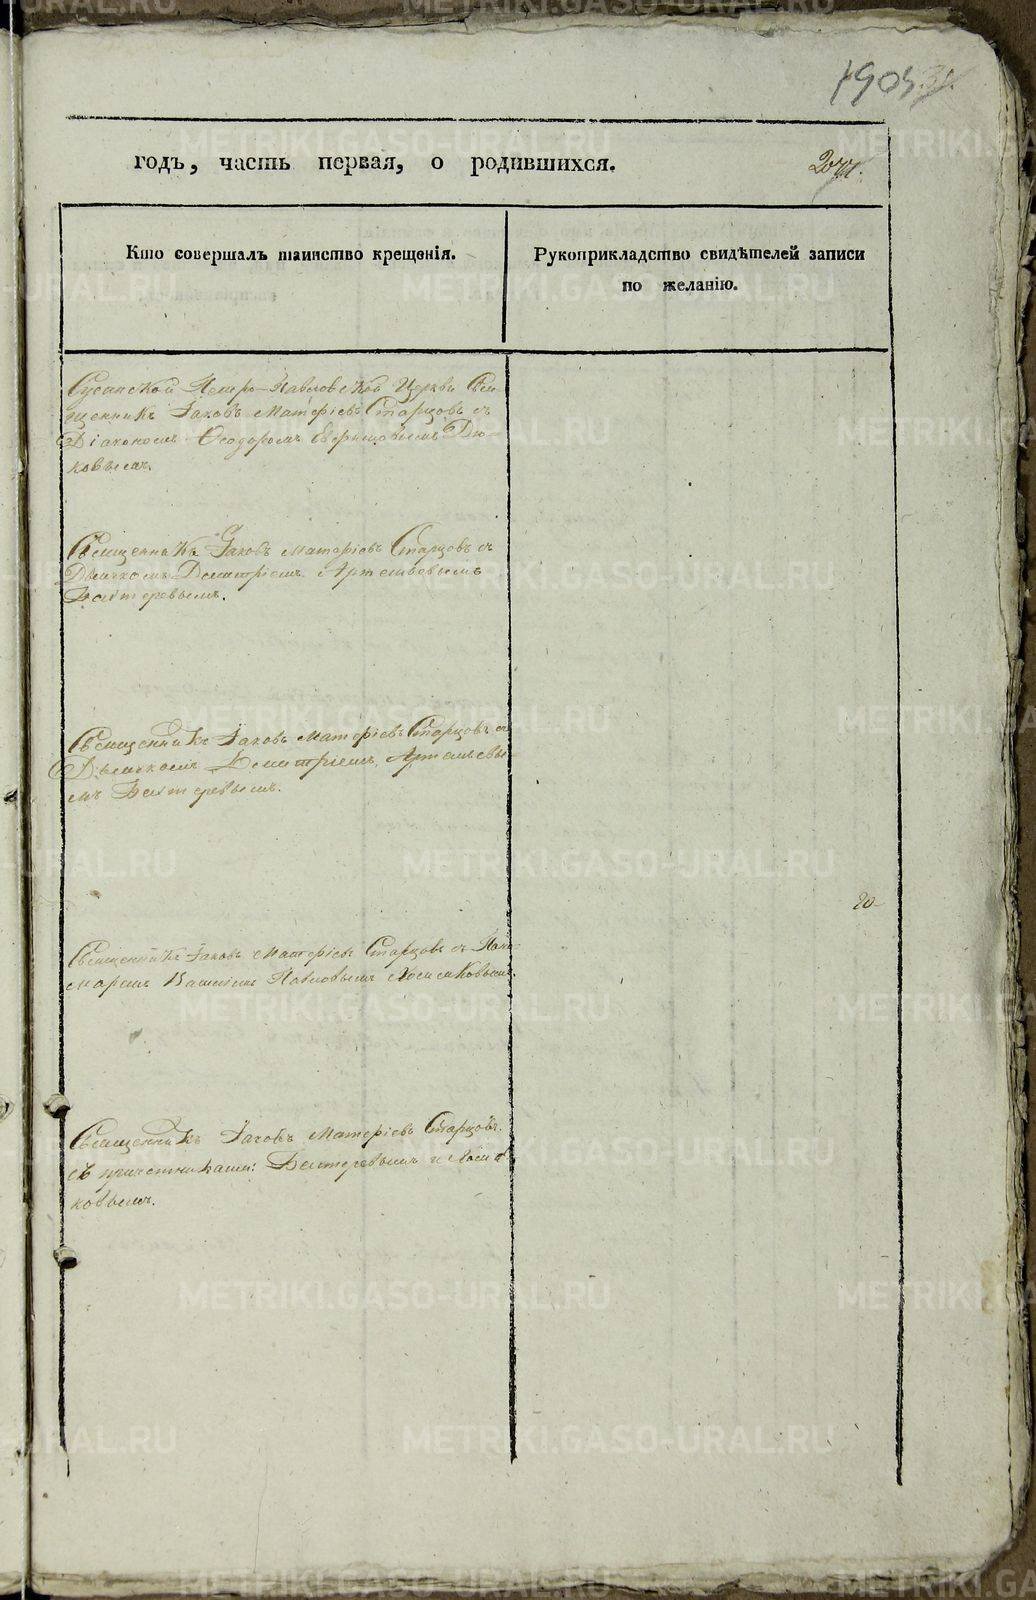 METRIKI.GASO-URAL.RU
годъ, часть первая, о родившихся.
Кто совершалъ таинство крещенія.
Рукоприкладство свидѣтелей записи
по желанію.
Сусанской Петро-Павловской Церкви Свя-
щенникъ Іаковъ Матѳіевъ Старцовъ съ
Діакономъ Ѳеодоромъ
ковымъ.
Священникъ Іаковъ Матѳіевъ Старцовъ съ
Дьячкомъ Димитріемъ Артемьевымъ
Бехтеревымъ.
Священникъ Іаковъ Матѳіевъ Старцовъ съ
Дьячкомъ Димитріемъ Артемьевы
мъ Бехтеревымъ.
20
Священникъ Іаковъ Матѳіевъ Старцовъ съ Поно-
маремъ Василіемъ Павловымъ
Священникъ Іаковъ Матѳіевъ Старцовъ
съ причетниками: Бехтеревымъ и
ковымъ.